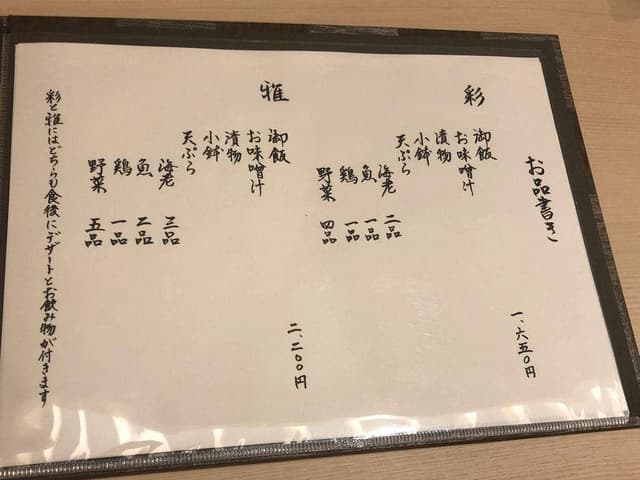 お品書き
彩
一、六五〇円
御飯
お味噌汁
漬物
小鉢
天ぷら
海老 二品
魚 一品
鶏 一品
野菜 四品
雅
二、二〇〇円
御飯
お味噌汁
漬物
小鉢
天ぷら
海老 三品
魚 二品
鶏 一品
野菜 五品
彩と雅にはどちらも食後にデザートとお飲み物が付きます